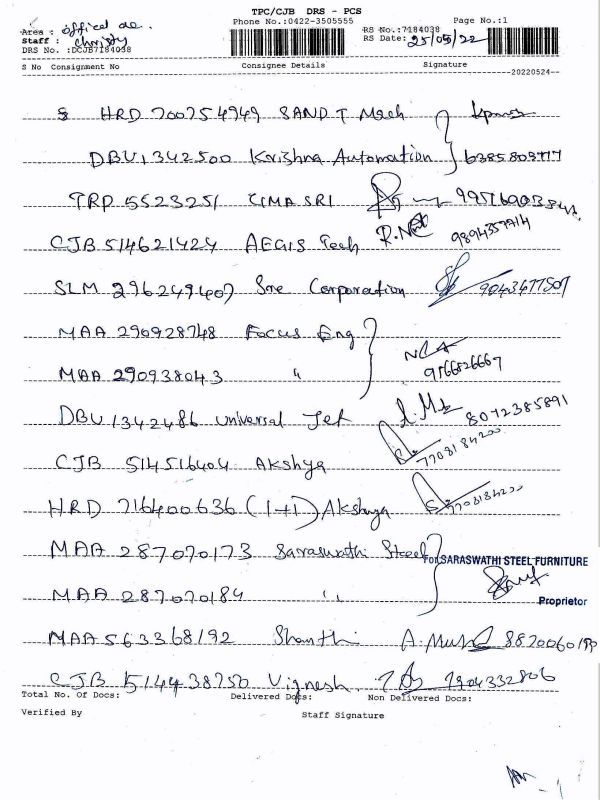 TPC/CJB DRS - PCS
Phone No.:0422-3505555 Page No.:1
Area : offical ac. RS No.:7184038
Staff : christy RS Date: 25/05/22
DRS No. :DCJB7184038
S No Consignment No Consignee Details Signature
20220524
HRD 700754949 SAND T Mech
DBU 1342500 Krishna Automation
TRP 5523251 UMA SRI
CJB 514621424 AEGIS Tech R.
9894357914
SLM 296249407 Sree Corporation 9043477507
MAA 290928748 Focus Eng
MAA 290938043 "
9566826667
DBU 1342486 universal Jet 8072385891
CJB 514516404 Akshya 7708184200
HRD 716400636 (1+1) Akshya 7708184200
MAA 287070173 Saraswathi Steel
For SARASWATHI STEEL FURNITURE
MAA 287070184 "
Proprietor
MAA 563368192 Shanthi A.
CJB 514438750 Vignesh 7904332806
Total No. Of Docs: Delivered Docs: Non Delivered Docs:
Verified By Staff Signature